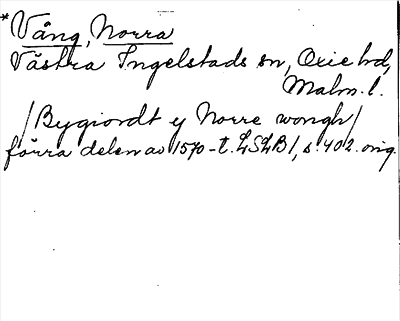 *Vång, Norra
Västra Ingelstads sn, Oxie hd,
Malm. l.
/Bygiordt y Norre wongh/
förra delen av 1570-t. LSLB 1, s. 402. orig.